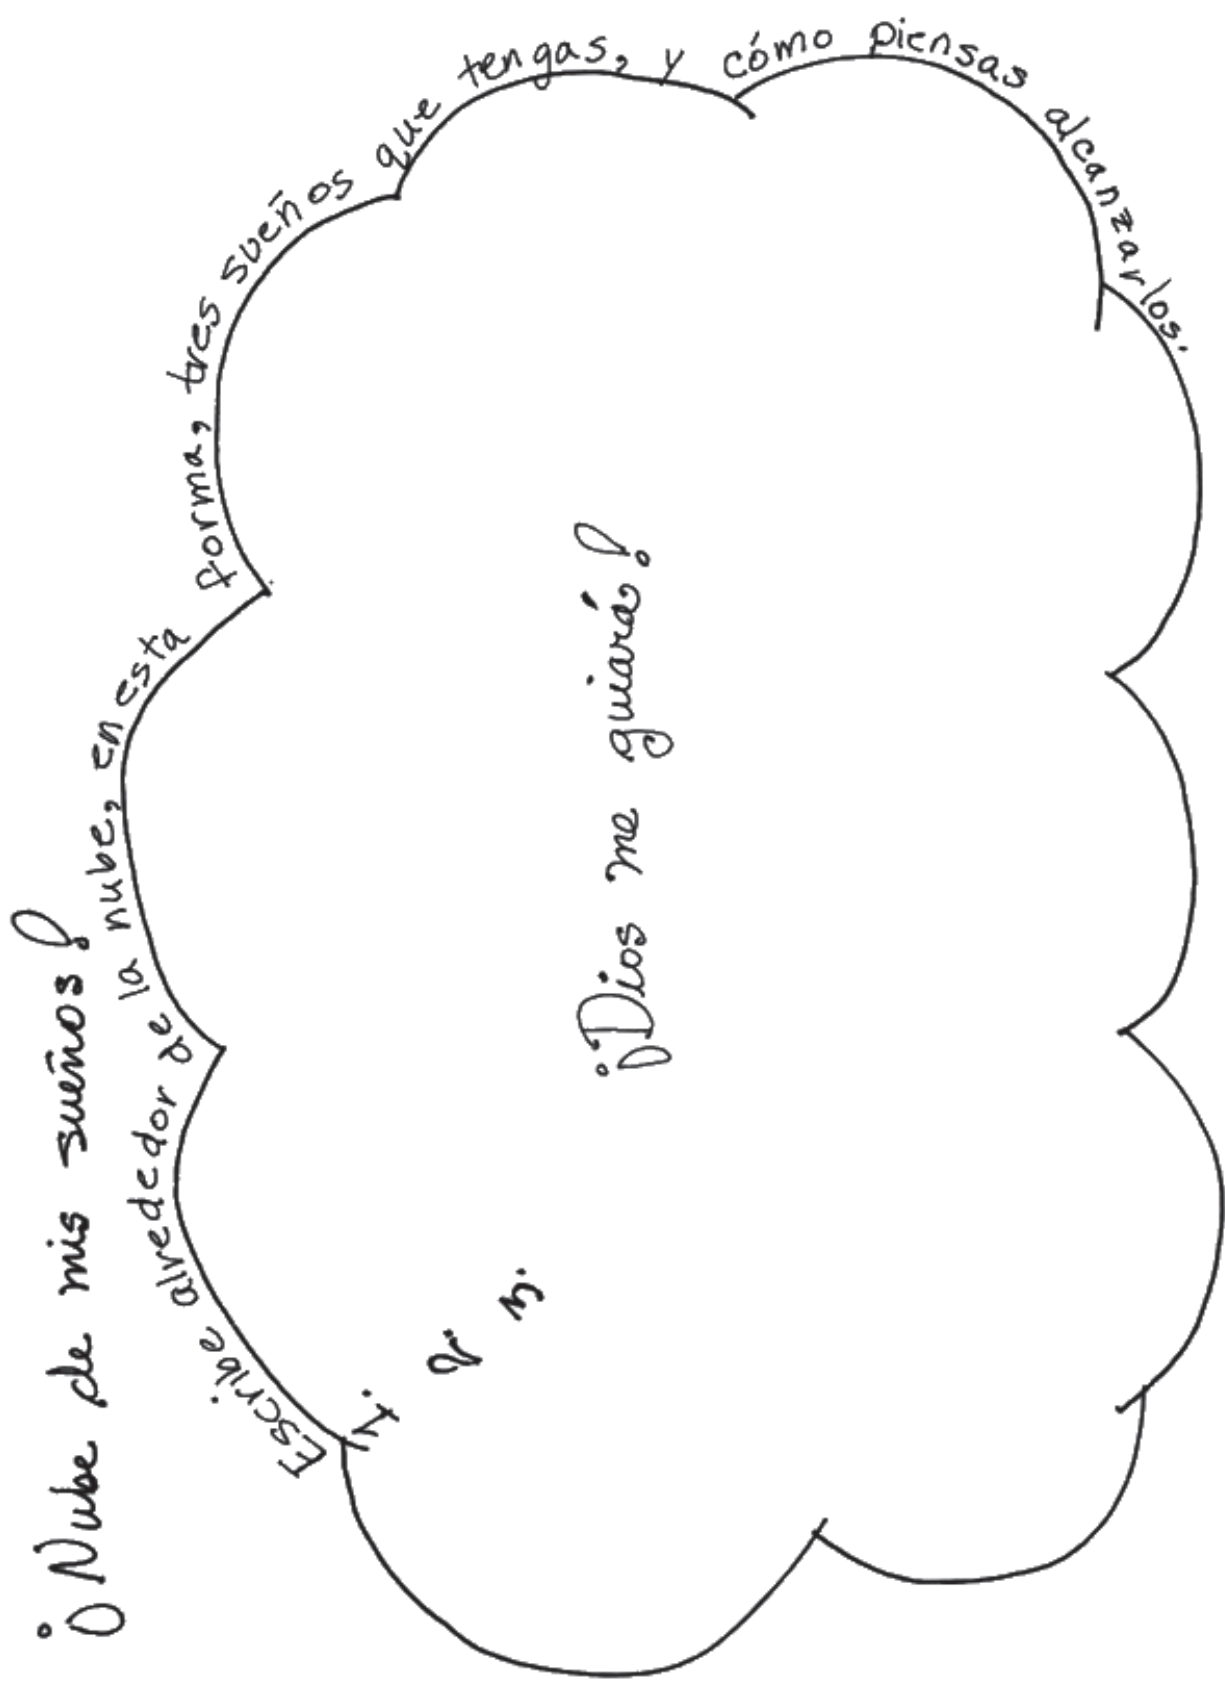 ¡Nube de mis sueños!
Escribe alrededor de la nube, en esta forma, tres sueños que tengas, y cómo piensas alcanzarlos.
1.
2.
3.
¡Dios me guiará!